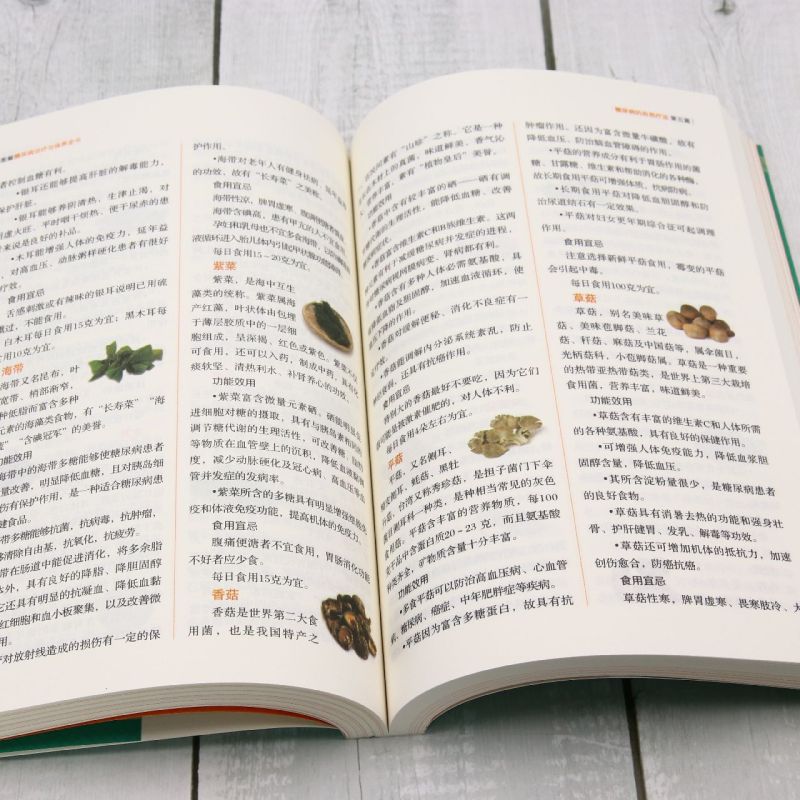 糖尿病治疗与保养全书
者控制血糖有利。
•银耳还能够提高肝脏的解毒能力，
保护肝脏。
•银耳能够养阴清热、生津止渴，对
阴虚火旺、平时咽干便热、便干尿赤的患
者来说是良好的补品。
•木耳能增强人体的免疫力，延年益
对高血压、动脉粥样硬化患者有很好
疗效。
食用宜忌
舌感刺激或有辣味的银耳说明已用硫
熏过，不能食用。
白木耳每日食用15克为宜；黑木耳每
食用10克为宜。
海带
海带又名昆布，叶
宽带，梢部渐窄，
种低脂而富含多种
元素的海藻类食物，有“长寿菜”“海
”“含碘冠军”的美誉。
功能效用
海带中的海带多糖能够使糖尿病患者
量改善，明显降低血糖，且对胰岛细
伤有保护作用，是一种适合糖尿病患
健食品。
海带多糖能够抗菌、抗病毒、抗肿瘤，
够清除自由基，抗氧化，抗疲劳。
带在肠道中能促进消化，将多余脂
体外，具有良好的降脂、降胆固醇
它还具有明显的抗凝血、降低血黏
红细胞和血小板聚集，以及改善微
用。
对放射线造成的损伤有一定的保
护作用。
•海带对老年人有健身祛病、延年益寿
的功效，故有“长寿菜”之美称。
食用宜忌
海带性凉，脾胃虚寒、腹满便溏者
海带含碘高，患有甲亢的人不宜食用
孕妇和乳母也不宜多食海带，
液循环进入胎儿体内引起甲状腺功能
每日食用15～20克为宜。
紫菜
紫菜，是海中互生
藻类的统称。紫菜属海
产红藻，叶状体由包埋
于薄层胶质中的一层细
胞组成，呈深褐、红色或紫色。紫菜不仅
可食用，还可以入药，制成中药，具有化
痰软坚、清热利水、补肾养心的功效。
功能效用
•紫菜富含微量元素硒，硒能明显促
进细胞对糖的摄取，具有与胰岛素相同的
调节糖代谢的生理活性，可改善糖、脂肪
等物质在血管壁上的沉积，降低血液黏稠
度，减少动脉硬化及冠心病、高血压等血
管并发症的发病率。
•紫菜所含的多糖具有明显增强细胞免
疫和体液免疫功能，提高机体的免疫力。
食用宜忌
腹痛便溏者不宜食用，胃肠消化功能
不好者应少食。
每日食用15克为宜。
香菇
香菇是世界第二大食
用菌，也是我国特产之
民间素有“山珍”之称。它是一种
在木材上的真菌，味道鲜美，香气沁
营养丰富，素有“植物皇后”美誉。
功能效用
•香菇中含有较丰富的硒——硒有调
糖代谢的生理活性，能降低血糖、改善
•香菇富含维生素C和B族维生素。这两
有利于减缓糖尿病并发症的进程，
视网膜病变、肾病都有利。
•香菇含有多种人体必需氨基酸，具
血脂及胆固醇，加速血液循环，使
压下降的作用。
•香菇对缓解便秘、消化不良症有一
疗效。
•香菇能调解内分泌系统紊乱，防止
病，还具有抗癌作用。
食用宜忌
特别大的香菇最好不要吃，因为它们
可能是被激素催肥的，对人体不利。
每日食用4朵左右为宜。
平菇
平菇，又名侧耳、
糙皮侧耳、蚝菇、黑牡
丹菇，台湾又称秀珍菇，是担子菌门下伞
菌目侧耳科一种类，是种相当常见的灰色
食用菇。平菇含丰富的营养物质，每100
克干品中含蛋白质20-23克，而且氨基酸
种类齐全，矿物质含量十分丰富。
功能效用
•多食平菇可以防治高血压病、心血管
病、糖尿病、癌症、中年肥胖症等疾病。
•平菇因为富含多糖蛋白，故具有抗
糖尿病的自然疗法 第三篇
肿瘤作用。还因为富含微量牛磺酸，故有
降低血压、防治脑血管障病的作用。
•平菇的营养成分有利于胃肠作用的菌
糖、甘露糖、维生素和帮助消化的各种酶，
故长期食用平菇可增强体质、抗病防病。
•长期食用平菇对降低血胆固醇和防
治尿道结石有一定效果。
•平菇对妇女更年期综合征可起调理
作用。
食用宜忌
注意选择新鲜平菇食用，霉变的平菇
会引起中毒。
每日食用100克为宜。
草菇
草菇，别名美味草
菇、美味苞脚菇、兰花
菇、秆菇、麻菇及中国菇等，属伞菌目，
光柄菇科，小苞脚菇属。草菇是一种重要
的热带亚热带菇类，是世界上第三大栽培
食用菌，营养丰富，味道鲜美。
功能效用
•草菇含有丰富的维生素C和人体所需
的各种氨基酸，具有良好的保健作用。
•可增强人体免疫能力，降低血浆胆
固醇含量，降低血压。
•其所含淀粉量很少，是糖尿病患者
的良好食物。
•草菇具有消暑去热的功能和强身壮
骨、护肝健胃、发乳、解毒等功效。
•草菇还可增加机体的抵抗力，加速
创伤愈合，防癌抗癌。
食用宜忌
草菇性寒，脾胃虚寒、畏寒肢冷、大